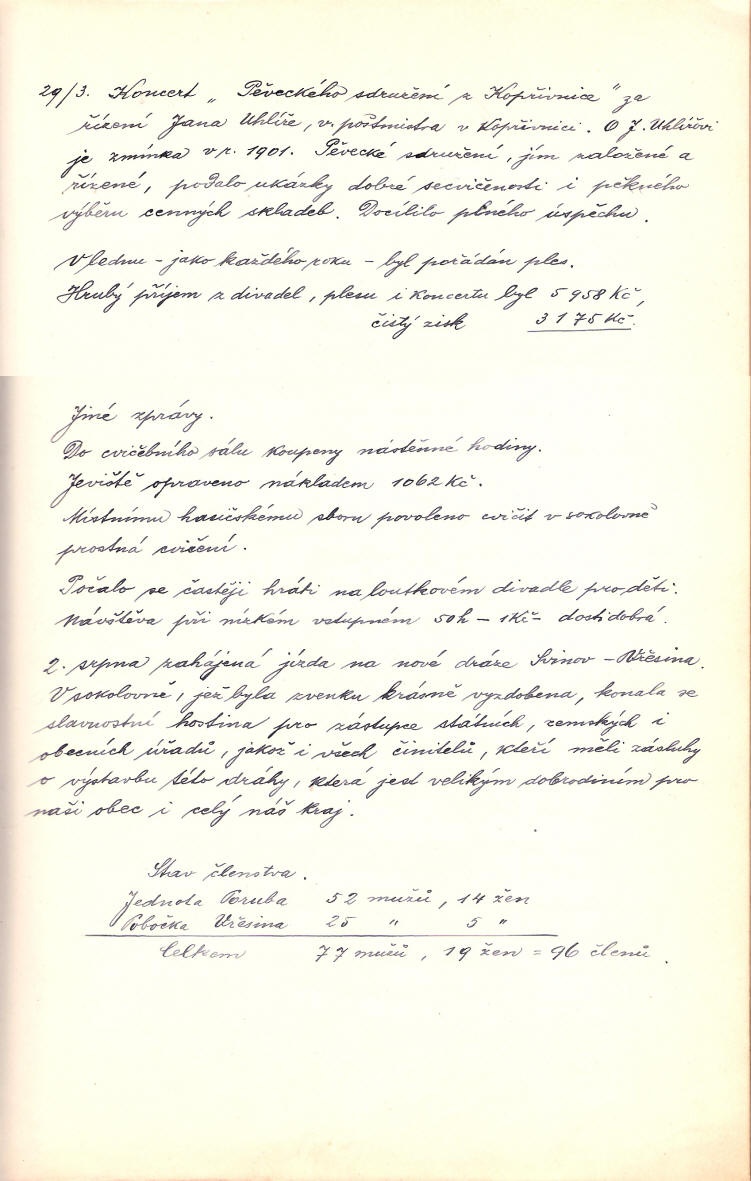 29/3. Koncert „Pěveckého sdružení z Kopřivnice" za
řízení Jana Uhlíře, vr. poštmistra v Kopřivnici. O J. Uhlířovi
je zmínka v r. 1901. Pěvecké sdružení, jím založené a
řízené, podalo ukázky dobré secvičenosti i pěkného
výběru cenných skladeb. Docílilo plného úspěchu.
V lednu – jako každého roku – byl pořádán ples.
Hrubý příjem z divadel, plesu i koncertu byl 5 958 Kč,
čistý zisk 3 175 Kč.
Jiné zprávy.
Do cvičebního sálu koupeny nástěnné hodiny.
Jeviště opraveno nákladem 1062 Kč.
Místnímu hasičskému sboru povoleno cvičit v sokolovně
prostná cvičení.
Počalo se častěji hráti na loutkovém divadle pro děti.
Návštěva při nízkém vstupném 50 h – 1 Kč – dosti dobrá.
2. srpna zahájená jízda na nové dráze Svinov – Vřesina.
V sokolovně, jež byla zvenku krásně vyzdobena, konala se
slavnostní hostina pro zástupce státních, zemských i
obecních úřadů, jakož i všech činitelů, kteří měli zásluhy
o výstavbu této dráhy, která jest velikým dobrodiním pro
naši obec i celý náš kraj.
Stav členstva.
Jednota Poruba 52 mužů, 14 žen
Pobočka Vřesina 25 " 5 "
Celkem 77 mužů, 19 žen = 96 členů.